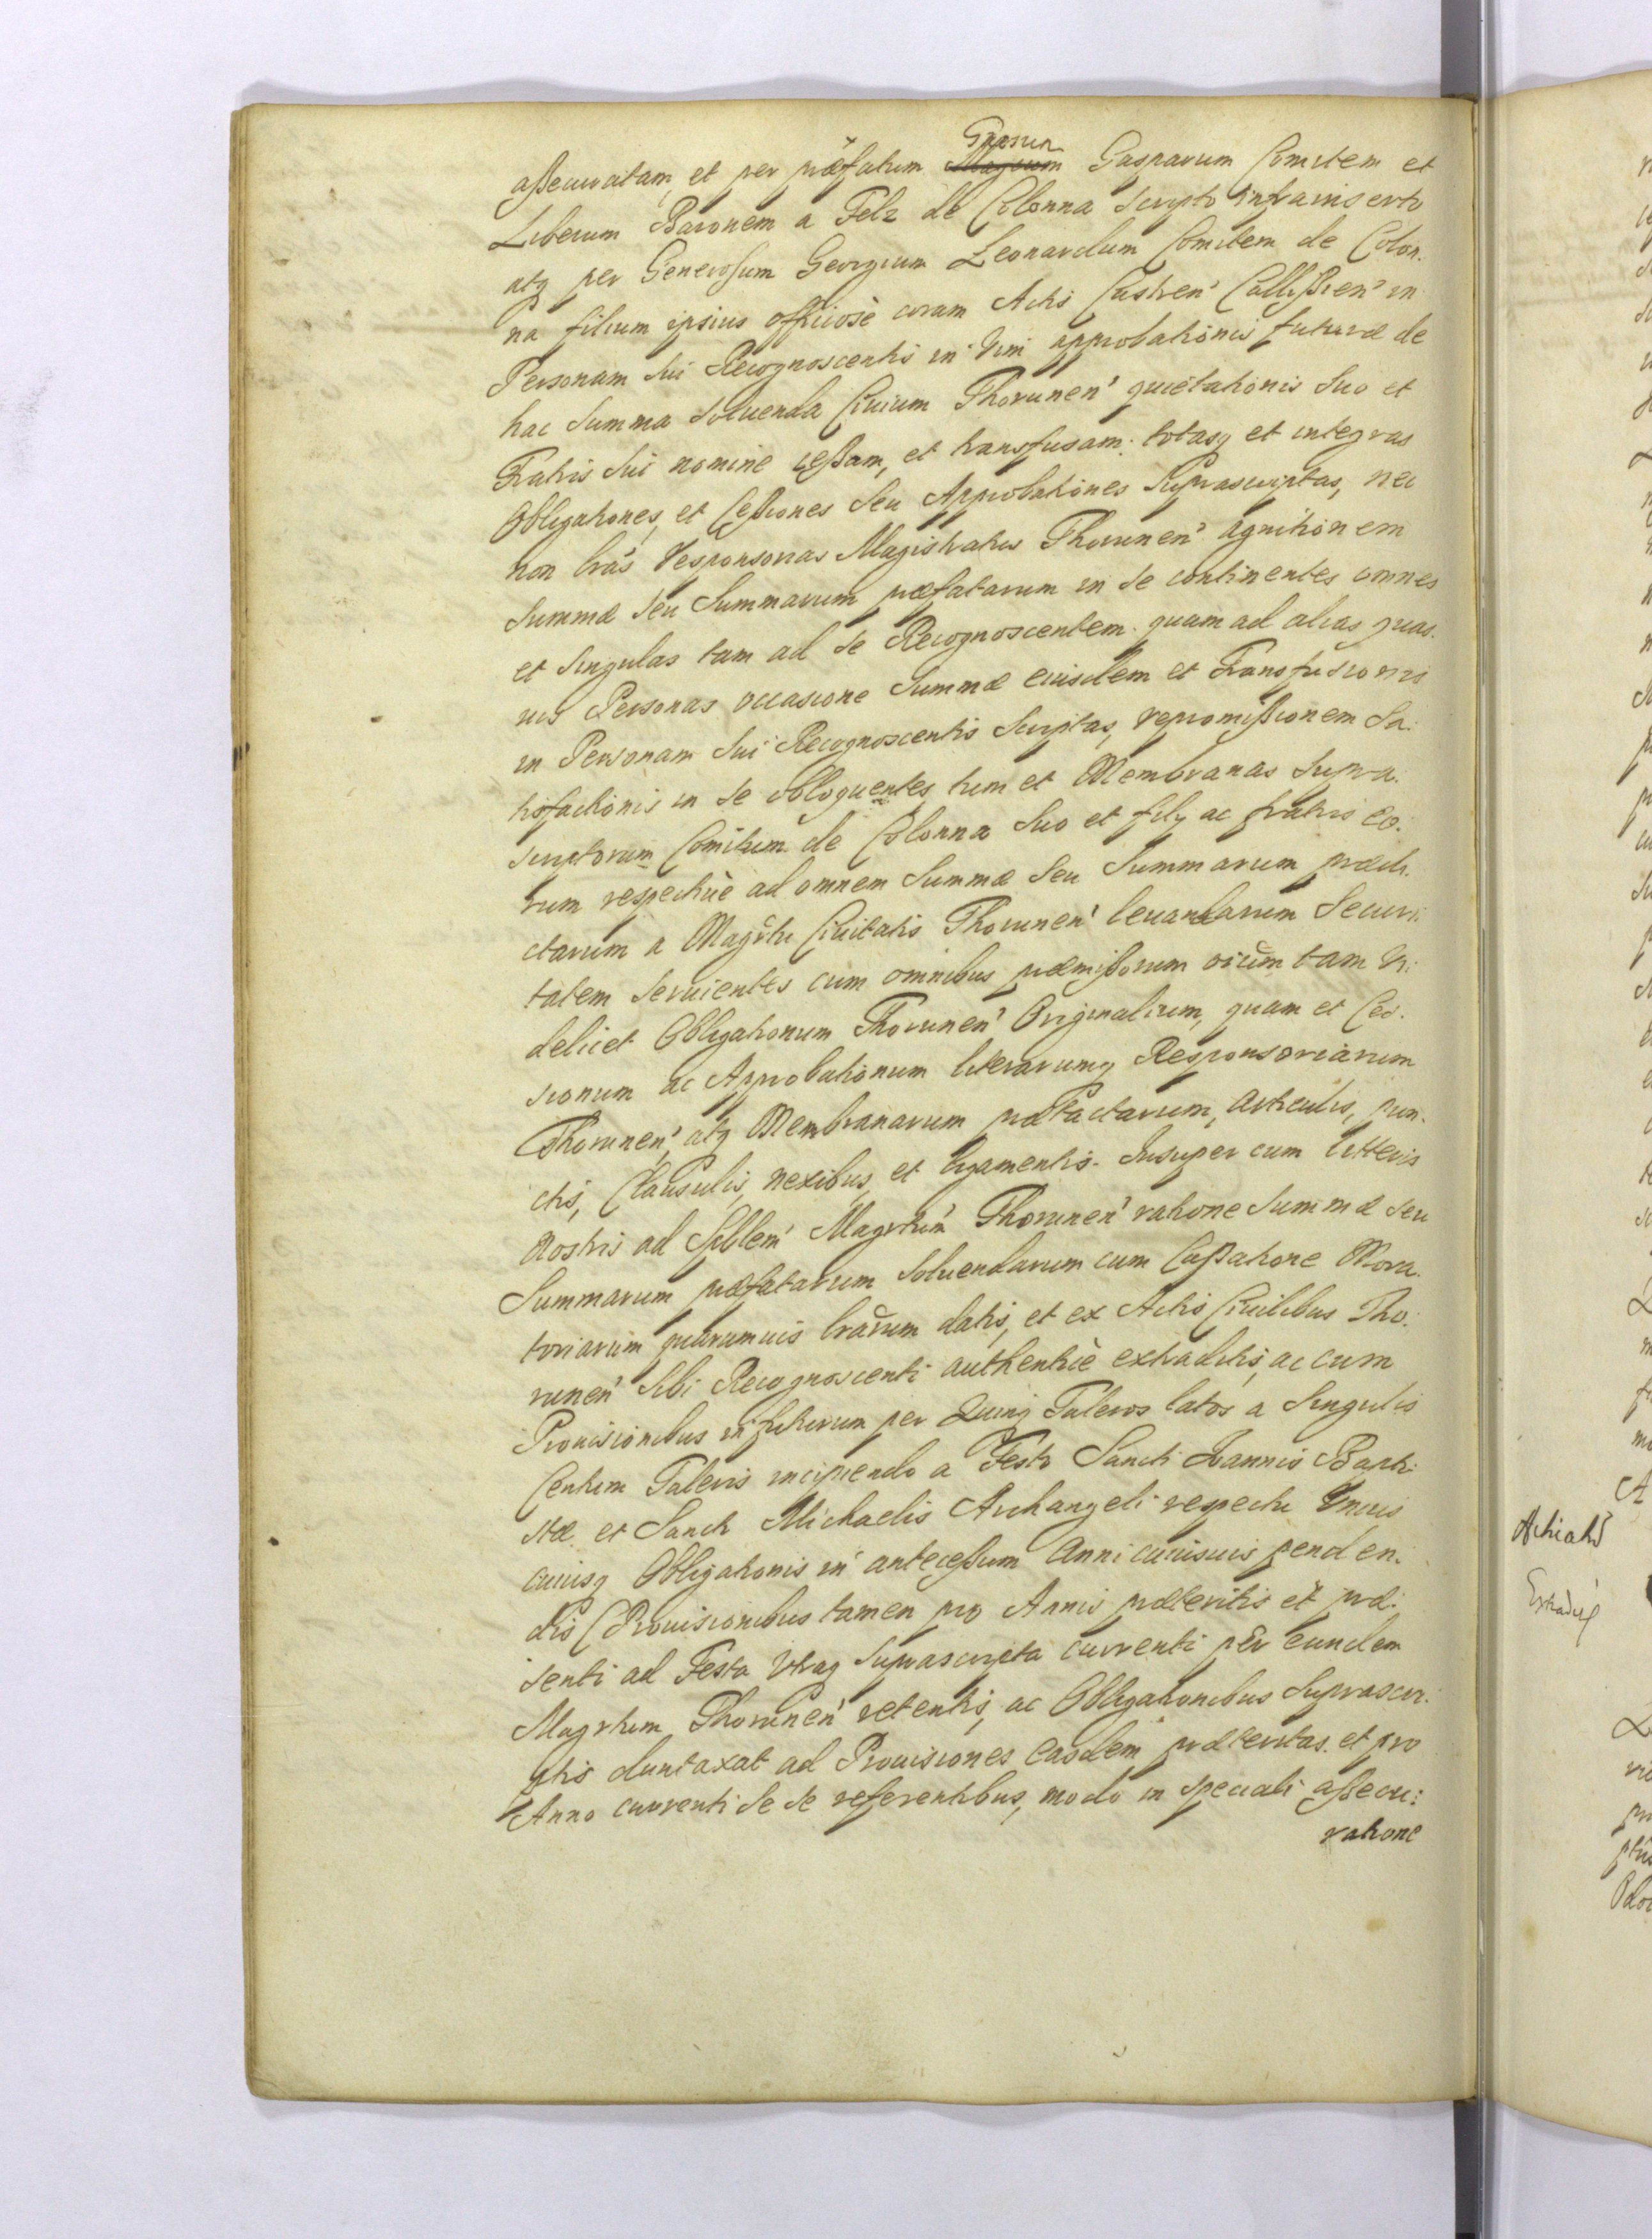 Gnosum
aßecuratam, et per præfatum Magcum Gasparum Comitem et
Liberum Baronem a Felz de Colonna scripto infrainserto
atq per Generosum Georgium Leonardum Comitem de Colon:
na filium ipsius officiosè coram Actis Castren' Callißien' in
Personam sui Recognoscentis in vim approbationis futuræ de
hac summa soluenda Ciuium Thorunen' quietationis suo et
Fratris sui nomine ceßam, et transfusam: totasq et integras
Obligationes, et Ceßiones seu Approbationes suprascriptas, nec
non lras responsorias Magistratus Thorunen' agnitionem
summæ seu summarum præfatarum in se continentes omnes
et singulas tam ad se Recognoscentem quam ad alias quas:
uis Personas occasione summæ eiusdem et Transfusionis
in Personam sui Recognoscentis scriptas, repromißionem sa:
tisfactionis in se obloquentes tum et Membranas supra:
scriptorum Comitum de Colonna suo et filij ac fratris eo:
rum respectiuè ad omnem summæ seu summarum prædi:
ctarum a Magrtu Ciuitatis Thorunen' leuandarum securi:
tatem seruientes cum omnibus præmißorum oium tam vi:
delicet Obligationum Thorunen' Originalium, quam et Ces:
sionum ac Approbationum literarumq Responsoriarum
Thorunen', atq Membranarum prætactarum, articulis, pun:
ctis, Clausulis, nexibus, et ligamentis. Insuper cum litteris
nostris ad Spblem Magrtum Thorunen' ratione summæ seu
Summarum præfatarum soluendarum cum Caßatione Mora:
toriarum quarumuis lrarum datis, et ex Actis Ciuilibus Tho:
runen' sibi Recognoscenti authenticè extraditis, ac cum
Prouisionibus in futurum per Quinq Taleros latos a singulis
Centum Taleris incipiendo a Festo Sancti Ioannis Bapti:
stæ et Sancti Michaelis Archangeli respectu vnius
cuiusq Obligationis in anteceßum Anni cuiusuis penden:
dis (Prouisionibus tamen pro Annis præteritis et præ:
senti ad Festa vtraq suprascripta currenti per eundem
Magrtum Thorunen' retentis, ac Obligationibus suprascri:
ptis duntaxat ad Prouisiones easdem præteritas et pro
Anno currenti se se referentibus, modo in speciali aßecu:
ratione